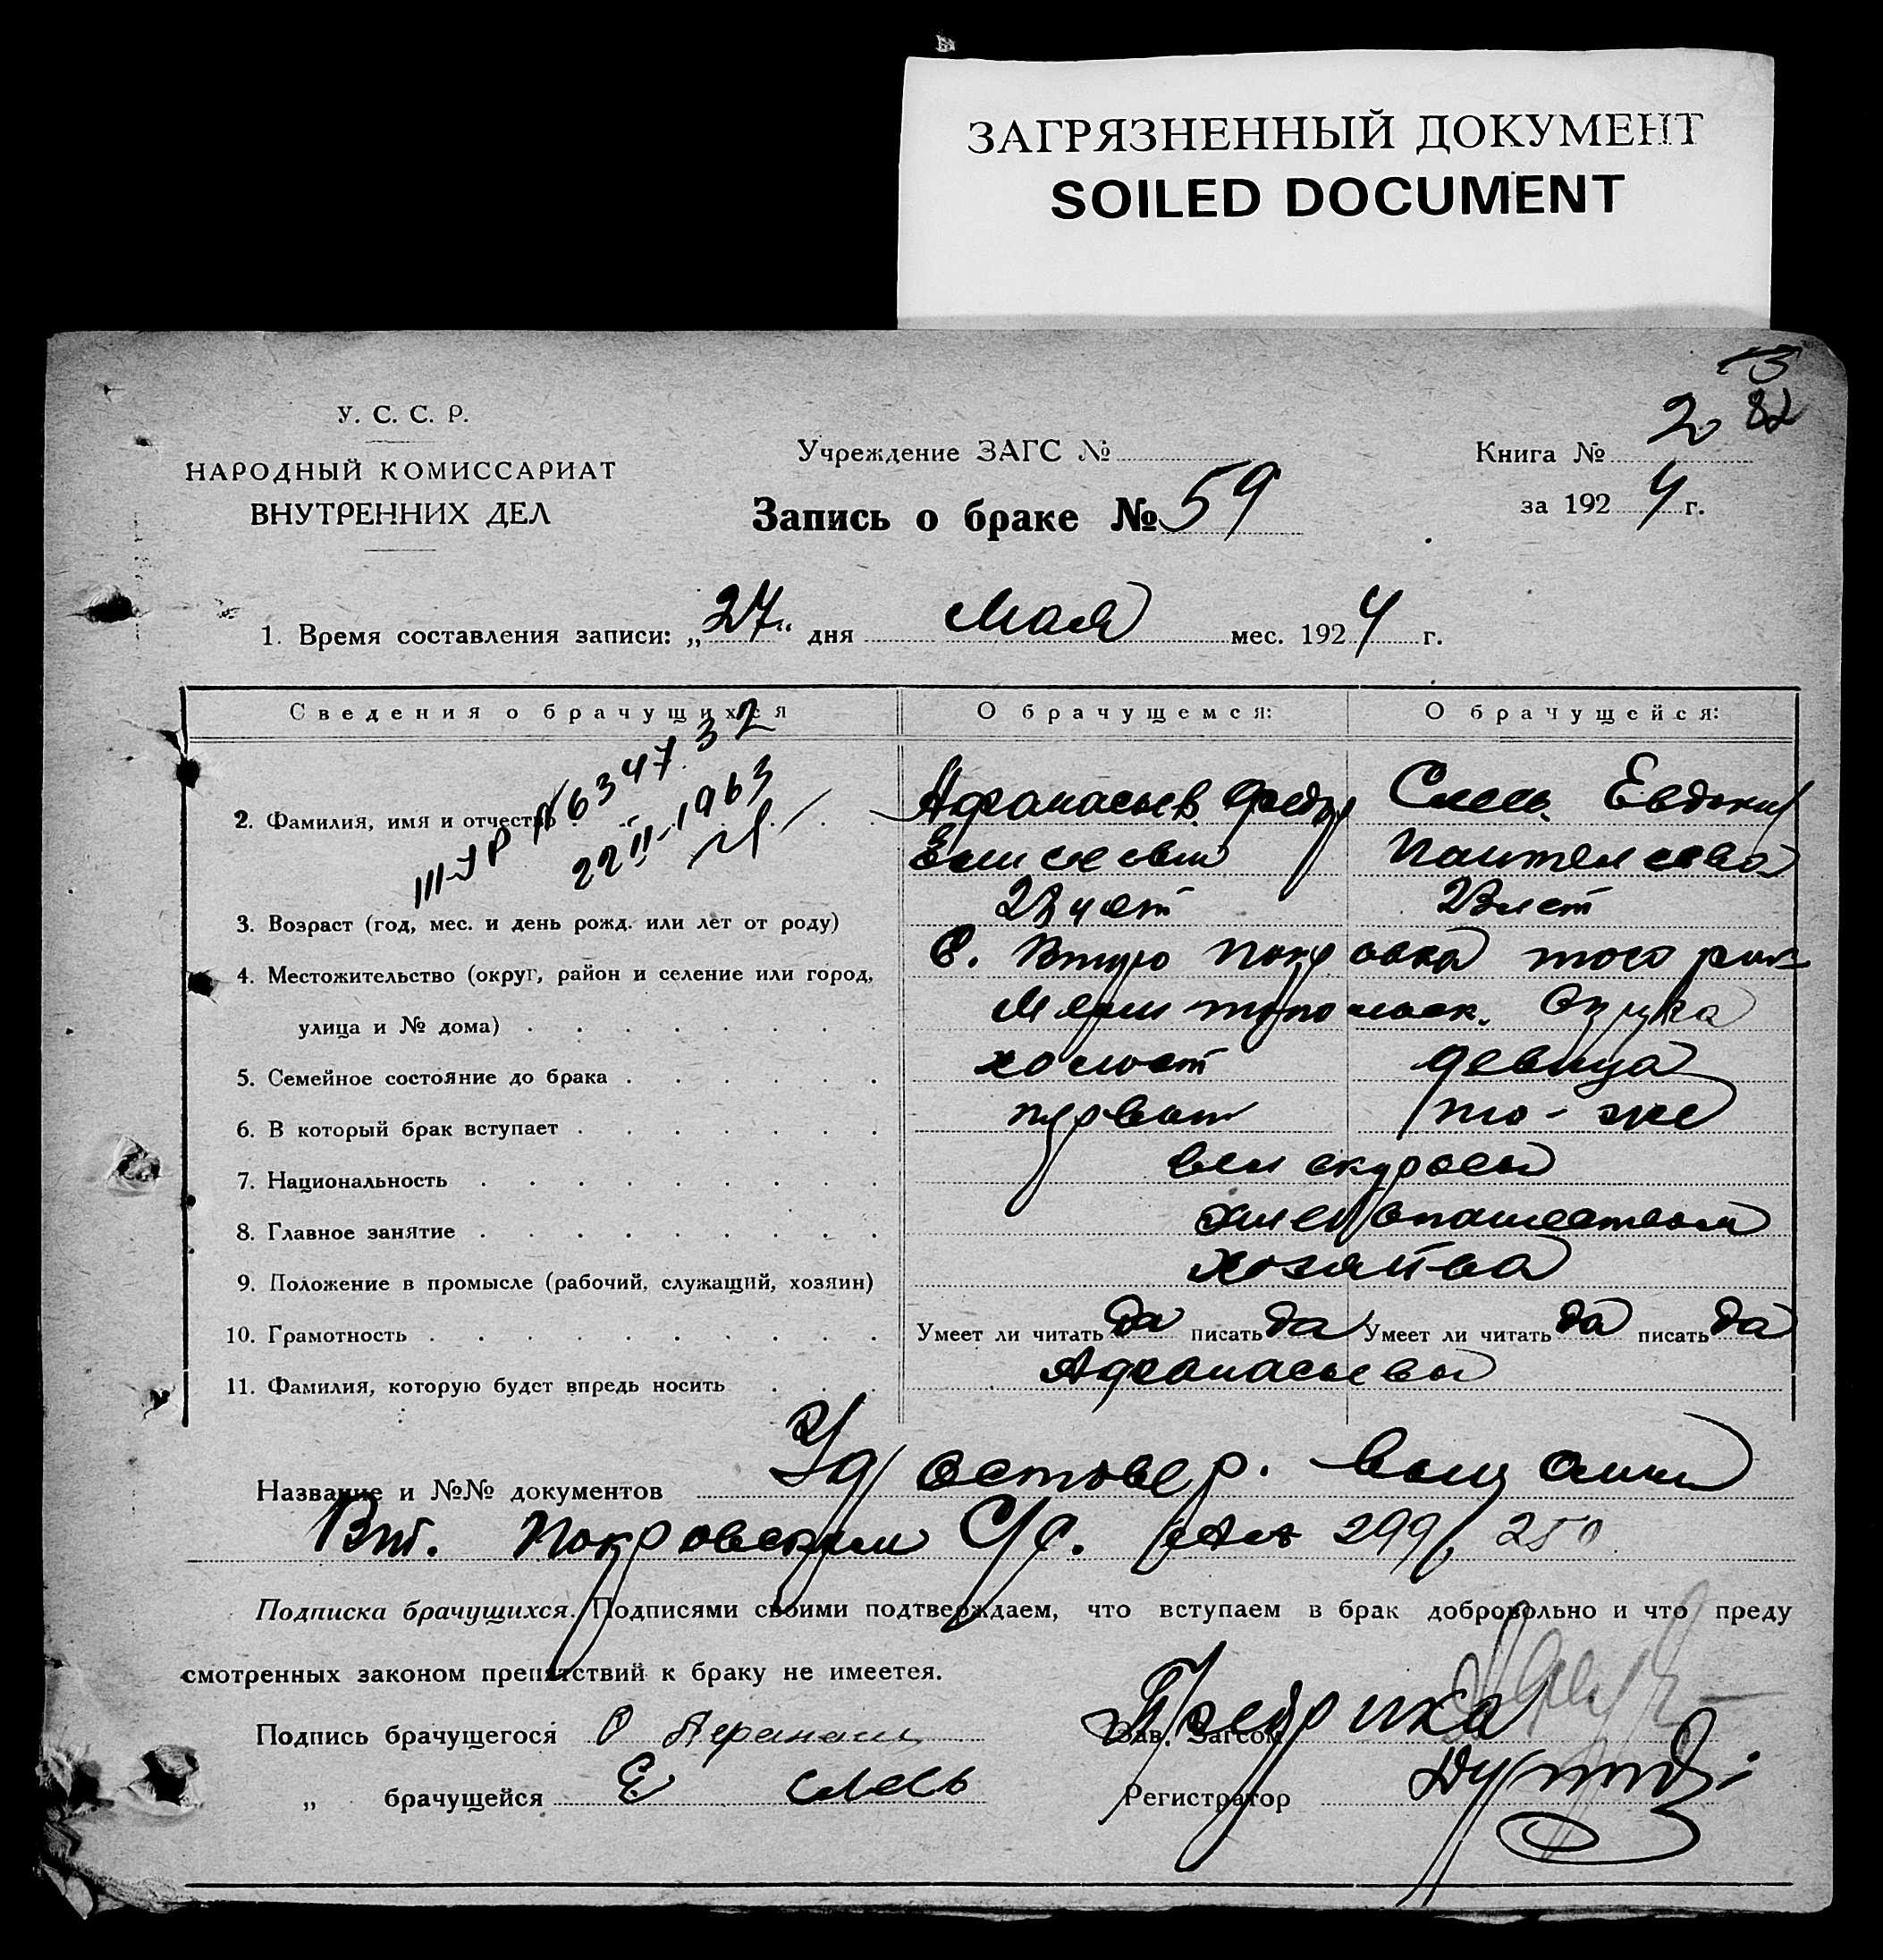 ЗАГРЯЗНЕННЫЙ ДОКУМЕНТ
SOILED DOCUMENT
У. С. С. Р.
НАРОДНЫЙ КОМИССАРИАТ
ВНУТРЕННИХ ДЕЛ
Учреждение ЗАГС №
Запись о браке № 59
82
Книга № 2
за 1924 г.
1. Время составления записи: „27" дня Мая мес. 1924 г.
Сведения о брачущихся
О брачущемся:
О брачущейся:
634732
22 II-1963
2. Фамилия, имя и отчество Афанасьев Федор Слесь Евдокия
Пантелеева
3. Возраст (год, мес. и день рожд. или лет от роду) лет 23 лет
4. Местожительство (округ, район и селение или город, с. Покровка того
улица и № дома) Мелитопольск. Округа
5. Семейное состояние до брака холост девица
6. В который брак вступает первый то-же
7. Национальность великуросы
8. Главное занятие хлебопашеством
9. Положение в промысле (рабочий, служащий, хозяин) хозяйва
10. Грамотность Умеет ли читать да писать да Умеет ли читать да писать да
11. Фамилия, которую будет впредь носить Афанасьевы
Название и №№ документов Удостовер.
Вт. Покровским С/С. 299/250
Подписка брачущихся. Подписями своими подтверждаем, что вступаем в брак добровольно и что преду
смотренных законом препятствий к браку не имеется.
Подпись брачущегося Зав. Загсом
„ брачущейся Е Слесь Регистратор